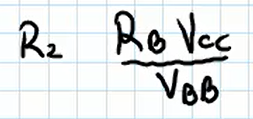 R₂ R_B V_CC / V_BB